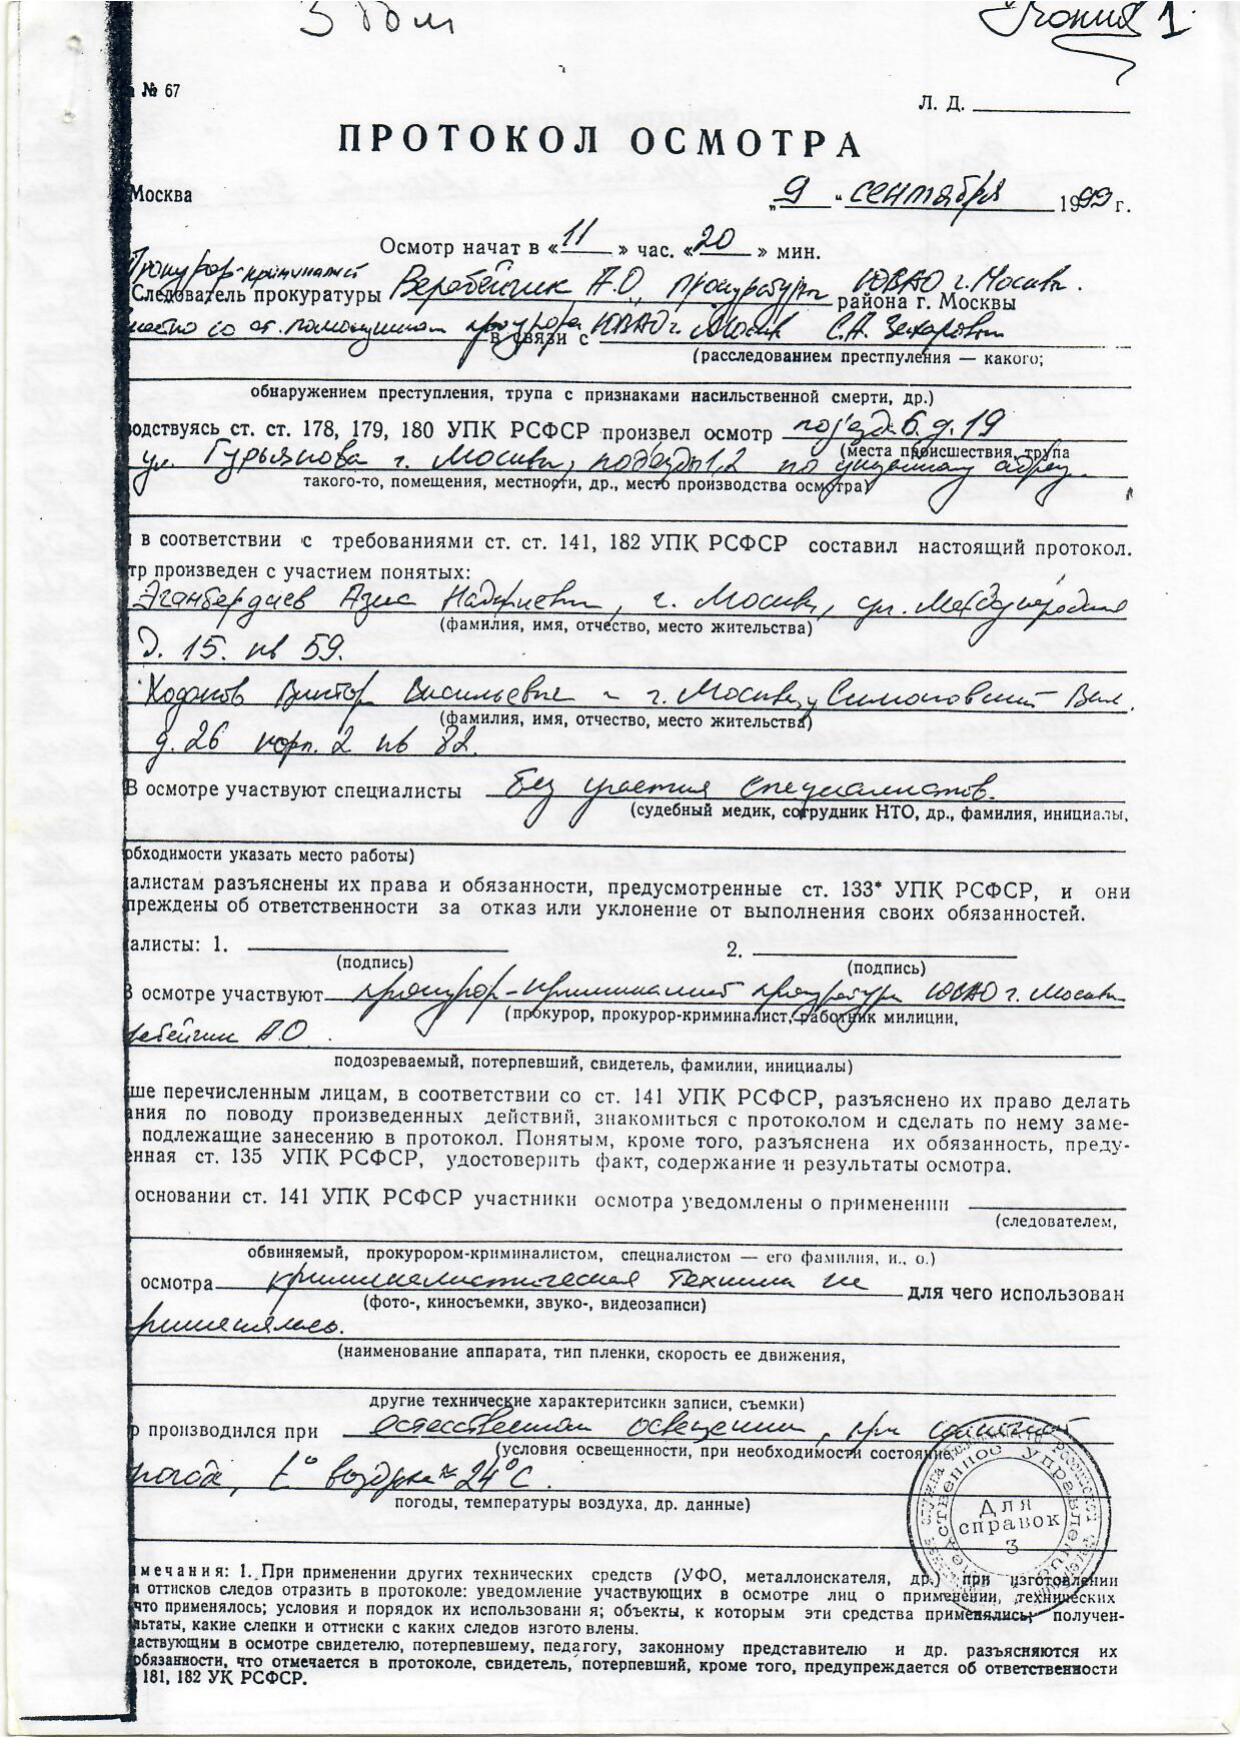 Копия 1
№ 67
Л. Д.
ПРОТОКОЛ ОСМОТРА
Москва „9 “ сентября 1999 г.
Осмотр начат в «11» час. «20» мин.
Прокурор-криминалист
Следователь прокуратуры Веребейчик А.О, прокуратуры ЮВАО г. Москвы.
района г. Москвы
со ст. помощником прокурора ЮВАО г. С.А.
в связи с
(расследованием престпуления — какого;
обнаружением преступления, трупа с признаками насильственной смерти, др.)
водствуясь ст. ст. 178, 179, 180 УПК РСФСР произвел осмотр под'езд 6. д. 19
(места происшествия, трупа
ул. Гурьянова г. Москвы, подъезды 1,2 по указанному адресу.
такого-то, помещения, местности, др., место производства осмотра)
в соответствии с требованиями ст. ст. 141, 182 УПК РСФСР составил настоящий протокол.
тр произведен с участием понятых:
Эганбердиев Азис г. Москва, ул. Международная
(фамилия, имя, отчество, место жительства)
д. 15. кв 59.
Виктор Васильевич - г. Москва, Симоновский Вал.
(фамилия, имя, отчество, место жительства)
д. 26 корп. 2 кв 82.
В осмотре участвуют специалисты без участия специалистов.
(судебный медик, сотрудник НТО, др., фамилия, инициалы,
обходимости указать место работы)
алистам разъяснены их права и обязанности, предусмотренные ст. 133* УПК РСФСР, и они
преждены об ответственности за отказ или уклонение от выполнения своих обязанностей.
алисты: 1. 2.
(подпись) (подпись)
В осмотре участвуют прокурор-криминалист прокуратуры ЮВАО г. Москвы
(прокурор, прокурор-криминалист, работник милиции,
ребейчик А.О.
подозреваемый, потерпевший, свидетель, фамилии, инициалы)
ше перечисленным лицам, в соответствии со ст. 141 УПК РСФСР, разъяснено их право делать
ания по поводу произведенных действий, знакомиться с протоколом и сделать по нему заме-
подлежащие занесению в протокол. Понятым, кроме того, разъяснена их обязанность, преду-
енная ст. 135 УПК РСФСР, удостоверить факт, содержание и результаты осмотра.
основании ст. 141 УПК РСФСР участники осмотра уведомлены о применении
(следователем,
обвиняемый, прокурором-криминалистом, специалистом — его фамилия, и., о.)
осмотра криминалистическая техника не для чего использован
(фото-, киносъемки, звуко-, видеозаписи)
рименялась.
(наименование аппарата, тип пленки, скорость ее движения,
другие технические характеритсики записи, съемки)
р производился при естественном освещении, при солнечной
(условия освещенности, при необходимости состояние,
погода, t° воздуха ≈ 24°С.
погоды, температуры воздуха, др. данные)
Для
справок
3
мечания: 1. При применении других технических средств (УФО, металлоискателя, др.) при изготовлении
и оттисков следов отразить в протоколе: уведомление участвующих в осмотре лиц о применении, технических
что применялось; условия и порядок их использовани я; объекты, к которым эти средства применялись; получен-
льтаты, какие слепки и оттиски с каких следов изгото влены.
аствующим в осмотре свидетелю, потерпевшему, педагогу, законному представителю и др. разъясняются их
обязанности, что отмечается в протоколе, свидетель, потерпевший, кроме того, предупреждается об ответственности
181, 182 УК РСФСР.